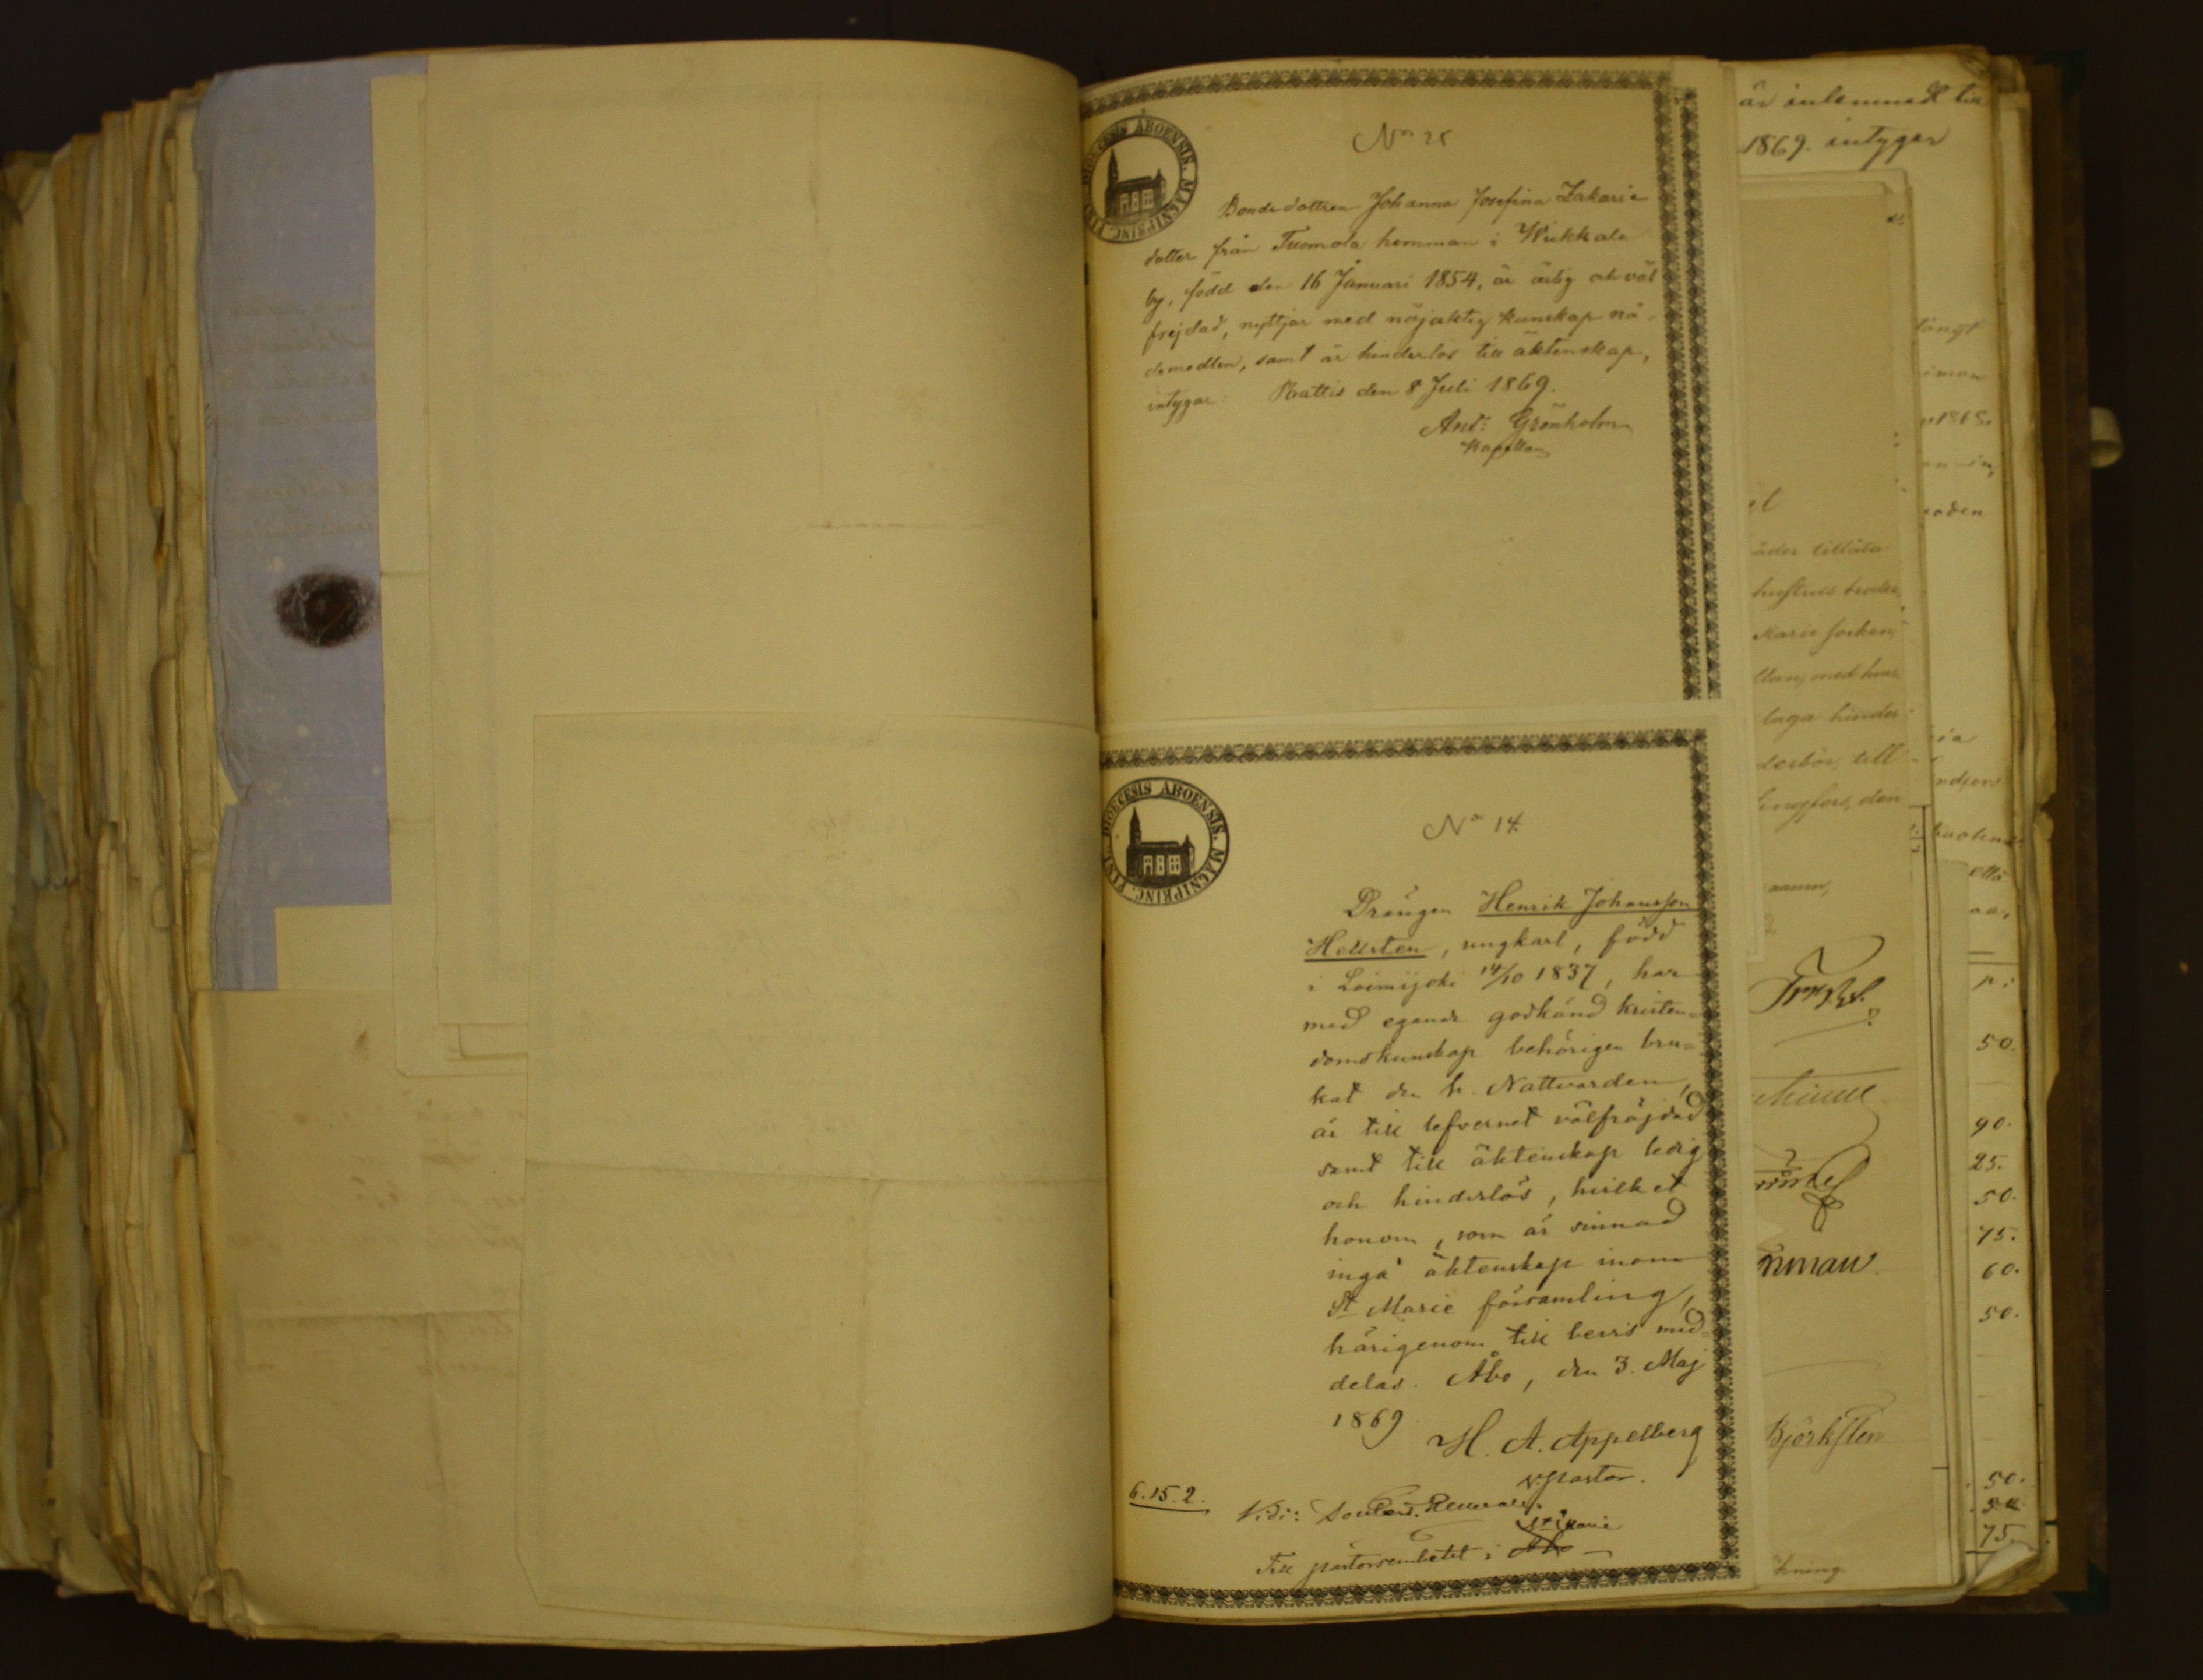 DIOECESIS ABOENSIS. MAGNI PRINC. FINL.
No 25
Bondedottren Johanna Josefina Zakarie
dotter från Tuomola hemman i Wiekkala
by, född den 16 Januari 1854, är ärlig och väl
frejdad, nyttjar med nöjaktig kunskap nå-
demedlen, samt är hinderlös till äktenskap,
intygar: Paattis den 8 Juli 1869.
And: Grönholm
Kapellan
DIOECESIS ABOENSIS. MAGNI PRINC. FINL.
No 14.
Drängen Henrik Johansson
Hellsten, ungkarl, född
i Loimijoki 14/10 1837, har
med egande godkänd kristen=
domskunskap behörigen bru=
kat den h. Nattvarden,
är till lefvernet välfräjdad
samt till äktenskap ledig
och hinderlös, hvilket
honom, som är sinnad
ingå äktenskap inom
St Marie församling,
härigenom till bevis med=
delas. Åbo, den 3. Maj
1869
H. A. Appelberg
v. pastor.
6.15.2.
Vidi:
St Marie
Till pastorsembetet i Åbo
är inlemnadt till
1869. intygar
1865.
oden
åder tillåta
hustrus broder
Marie socken,
med hvar
laga hinder
derbör, till
den
50.
90.
25.
50.
75.
60.
50.
Björksten
50.
50
75.
kning.